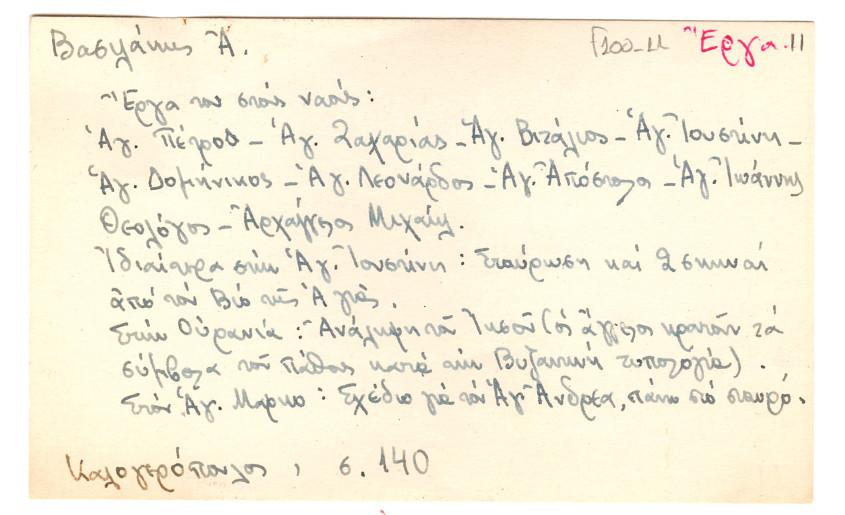 Βασιλάκης Ἀ. F100-11 Ἔργα. 11
Ἔργα του στούς ναούς:
Ἁγ. Πέτρου - Ἁγ. Ζαχαρίας - Ἁγ. Βιτάλιος - Ἁγ. Ἰουστίνη -
Ἁγ. Δομήνικος - Ἁγ. Λεονάρδος - Ἁγ. Ἀπόστολοι - Ἁγ. Ἰωάννης
Θεολόγος - Ἀρχάγγελος Μιχαήλ.
Ἰδιαίτερα στήν Ἁγ. Ἰουστίνη: Σταύρωση καί 2 σκηναί
ἀπό τόν Βίο τῆς Ἁγίας.
Στήν Οὐρανία: Ἀνάληψη τοῦ Ἰησοῦ (οἱ ἄγγελοι κρατοῦν τά
σύμβολα τοῦ πάθους κατά τήν Βυζαντινή τυπολογία).
Στόν Ἁγ. Μάρκο: Σχέδιο γιά τόν Ἁγ. Ἀνδρέα, πάνω στό σταυρό.
Καλογερόπουλος, σ. 140